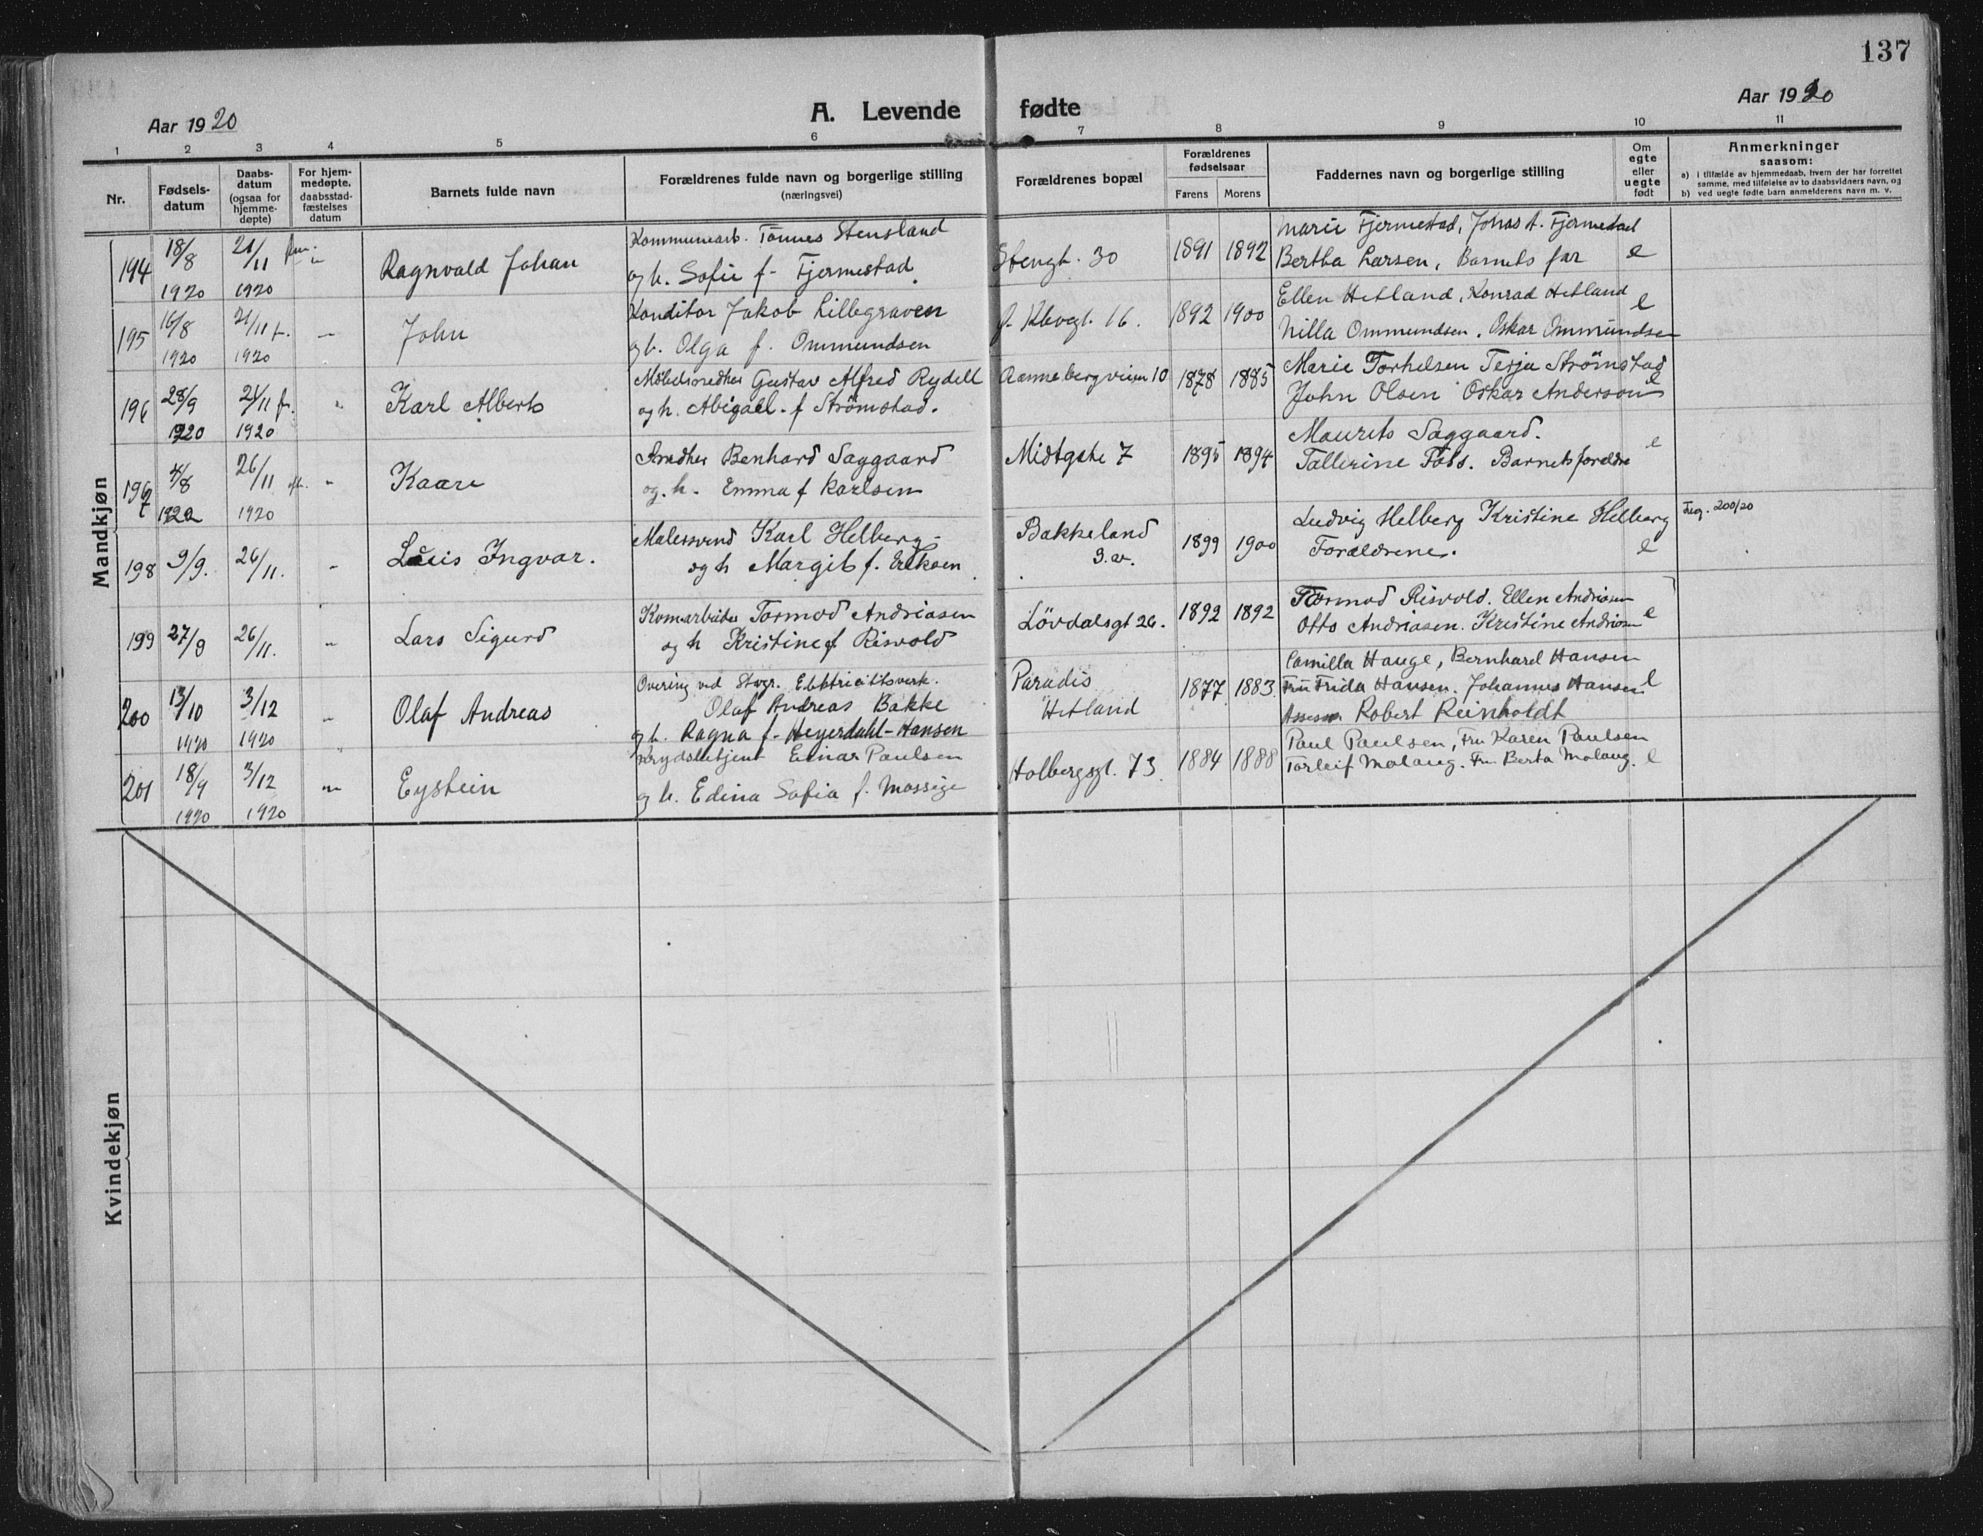 137
Aar 1920
A. Levende fødte
Aar 1920
1 2 3 4 5 6 7 8 9 10 11
Nr.
Fødsels-
datum
Daabs-
datum
(ogsaa for
hjemme-
døpte)
For hjem-
medøpte,
daabsstad-
fæstelses
datum
Barnets fulde navn
Forældrenes fulde navn og borgerlige stilling
(næringsvei)
Forældrenes bopæl
Forældrenes
fødselsaar
Farens Morens
Faddernes navn og borgerlige stilling
Om
egte
eller
uegte
født
Anmerkninger
saasom:
a) i tilfælde av hjemmedaab, hvem der har forrettet
samme, med tilføielse av to daabsvidners navn, og
b) ved uegte fødte barn anmelderens navn m. v.
Mandkjøn
194 18/8 1920 21/11 1920 Ragnvald Johan
Kommunearb. Tönnes Stensland
og h. Sofie f. Fjermestad
Stengt. 30 1891 1892
Marie Fjermestad, Jonas A. Fjermestad
Bertha Larsen, Barnets far e
195 16/8 1920 21/11 f. 1920 John
Konditor Jakob Lillegraven
og h. Olga f. Ommundsen
Ø. Klevgt. 16. 1892 1900
Ellen Hetland, Konrad Hetland
Nilla Ommundsen. Oskar Ommundsen e
196 28/9 1920 21/11 f. 1920 Karl Alberts
Møbelsnedker Gustav Alfred Rydell
og h. Abigael f. Strömstad.
Rannebergveien 10 1878 1885
Marie Torkelsen Terju Strömstad
John Olsen Oskar Anderson e
197 4/8 1920 26/11 1920 Kaare
Snedker Benhard Saggaard
og h. Emma f Karlsen
Midtgate 7 1895 1894
Maurits Saggaard.
Tallerine Foss. Barnets forældre e
198 9/9. 26/11. Louis Ingvar.
Malersvend Karl Helberg
og h Margit f. Eriksen
Bakkeland
3. v. 1899 1900
Ludvig Helberg Kristine Helberg
Forældrene. e
200/20
199 27/9 26/11. Lars Sigurd
Komarbeider Tormod Andriasen
og h Kristine f Risvold
Lövdalsgt 26. 1892 1892
Tormod Risvold. Ellen Andriasen
Otto Andriasen. Kristine Andriasen e
200 13/10 1920 3/12 1920 Olaf Andreas
Overing ved Stvgr. Elektricitetsverk.
Olaf Andreas Bakke
og h. Ragna f. Heyerdahl-Hansen
Paradis
Hetland 1877 1883
Camilla Hauge, Bernhard Hansen
Fru Frida Hansen. Johannes Hansen e
Assessor Robert Reinholdt
201 18/9 1920 3/12 1920 Eystein
Krydsbetjent Einar Paulsen
og h. Edina Sofia f. Mossige
Holbergsgt. 73. 1884 1888
Paul Paulsen, Fru Karen Paulsen
Torleif Molaug. Fru Berta Molaug. e
Kvindekjøn